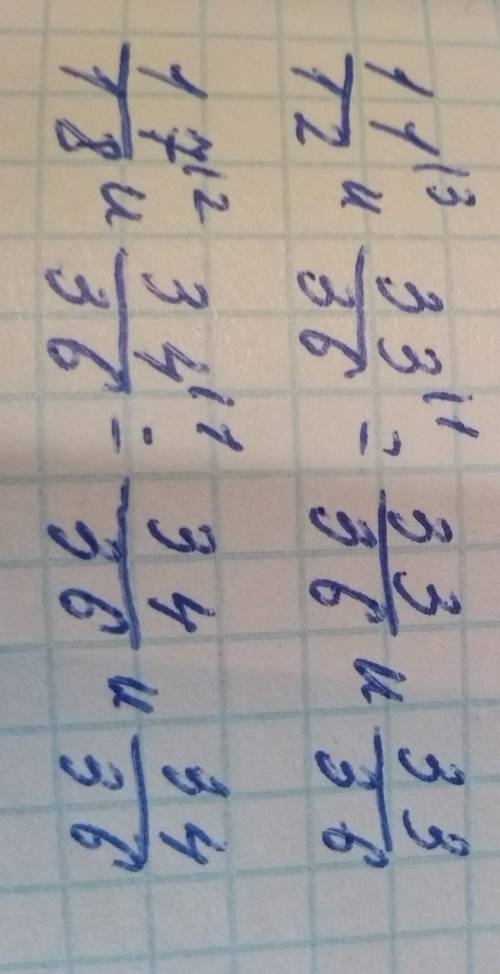 11/12 \3 и 33/36 \1 = 33/36 и 33/36
17/18 \2 и 34/36 \1 = 34/36 и 34/36